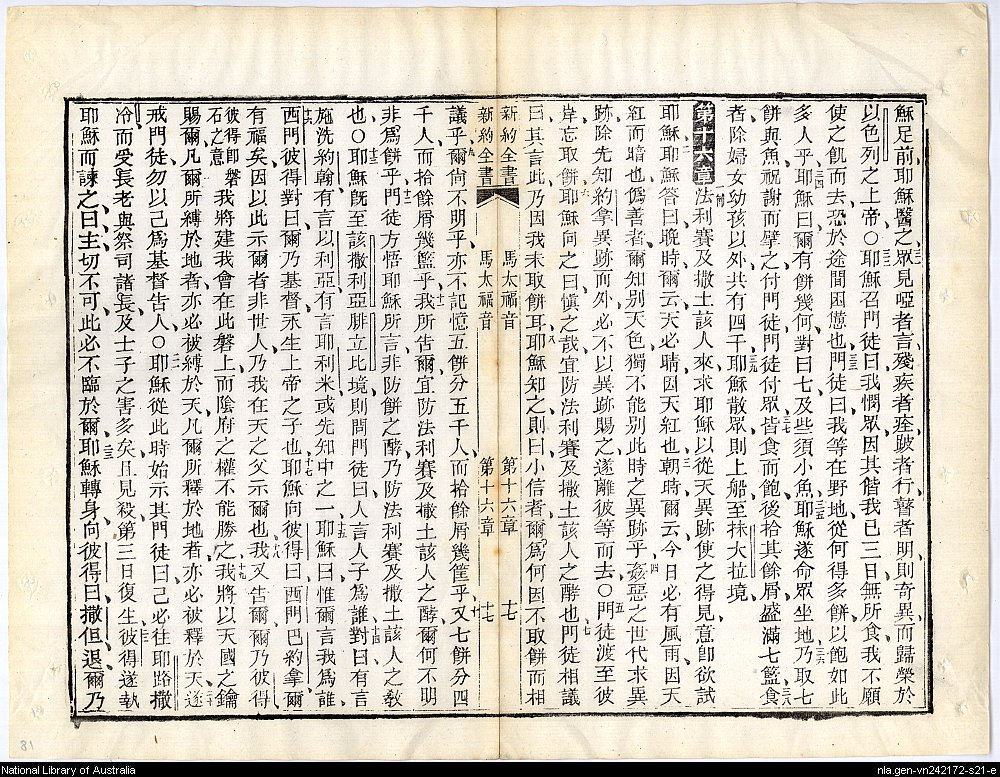 穌足前耶穌醫之眾見啞者言殘疾者痊跛者行瞽者明則奇異而歸榮於
以色列之上帝〇耶穌召門徒曰我憫眾因其偕我已三日無所食我不願
使之飢而去恐於途間困憊也門徒曰我等在野地從何得多餅以飽如此
多人乎耶穌曰爾有餅幾何對曰七及些須小魚耶穌遂命眾坐地乃取七
餅與魚祝謝而擘之付門徒門徒付眾皆食而飽後拾其餘屑盛滿七籃食
者除婦女幼孩以外共有四千耶穌散眾則上船至抹大拉境
第十六章法利賽及撒土該人來求耶穌以從天異跡使之得見意卽欲試
耶穌耶穌答曰晚時爾云天必晴因天紅也朝時爾云今日必有風雨因天
紅而暗也僞善者爾知別天色獨不能別此時之異跡乎姦惡之世代求異
跡除先知約拿異跡而外必不以異跡賜之遂離彼等而去〇門徒渡至彼
岸忘取餅耶穌向之曰愼之哉宜防法利賽及撒土該人之酵也門徒相議
曰其言此乃因我未取餅耳耶穌知之則曰小信者爾爲何因不取餅而相
新約全書 馬太福音 第十六章 十七
新約全書 馬太福音 第十六章 十七
議乎爾尙不明乎亦不記憶五餅分五千人而拾餘屑幾筐乎又七餅分四
千人而拾餘屑幾籃乎我所告爾宜防法利賽及撒土該人之酵爾何不明
非爲餅乎門徒方悟耶穌所言非防餅之酵乃防法利賽及撒土該人之敎
也〇耶穌旣至該撒利亞腓立比境則問門徒曰人言人子爲誰對曰有言
施洗約翰有言以利亞有言耶利米或先知中之一耶穌曰惟爾言我爲誰
西門彼得對曰爾乃基督永生上帝之子也耶穌向彼得曰西門巴約拿爾
有福矣因以此示爾者非世人乃我在天之父示爾也我又告爾爾乃彼得
彼得卽磐石之意我將建我會在此磐上而陰府之權不能勝之我將以天國之鑰
賜爾凡爾所縛於地者亦必被縛於天凡爾所釋於地者亦必被釋於天遂
戒門徒勿以己爲基督告人〇耶穌從此時始示其門徒曰己必往耶路撒
冷而受長老與祭司諸長及士子之害多矣且見殺第三日復生彼得遂執
耶穌而諫之曰主切不可此必不臨於爾耶穌轉身向彼得曰撒但退爾乃
81
National Library of Australia
nla.gen-vn242172-s21-e